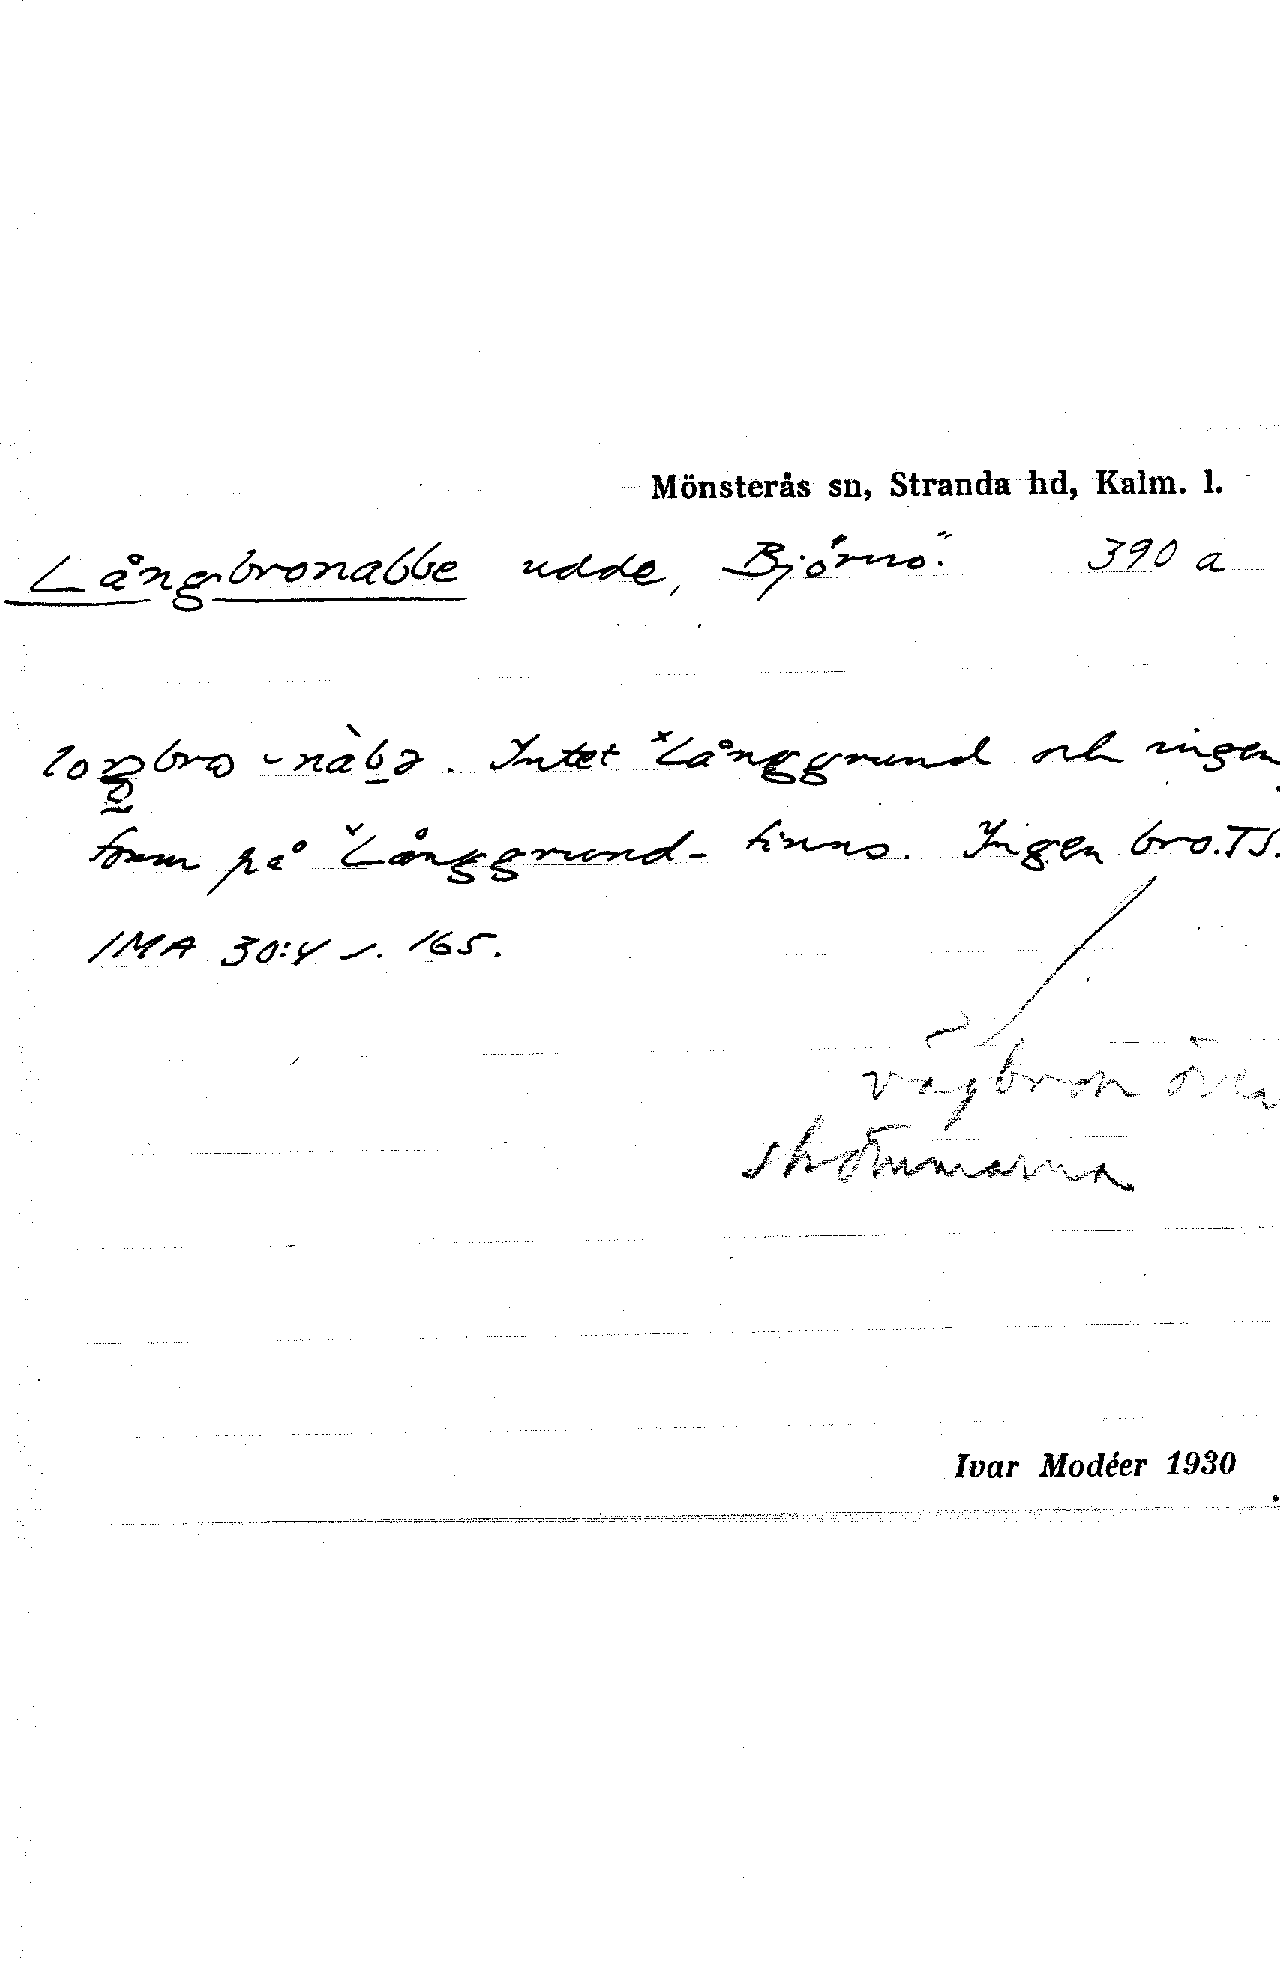 Mönsterås sn, Stranda hd, Kalm. l.
Långbronabbe udde, Björnö. 390 a
Intet *Långgrund och ingen
form på *Långgrund- finns. Ingen bro. TS.
IMA 30:4 s. 165.
vägbron över
strömmarna
Ivar Modéer 1930